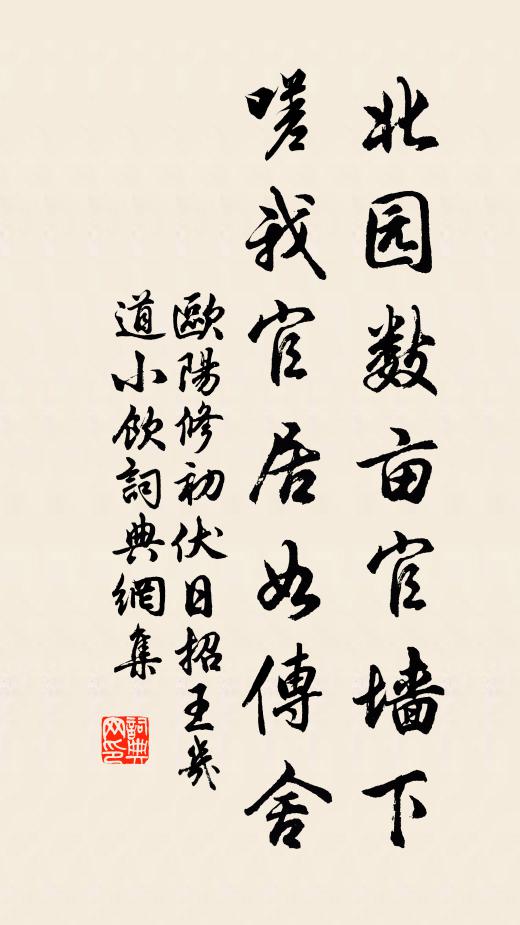 北园数亩官墙下
嗟我官居如傳舍
歐陽修初伏日招王幾
道小飲詞典網集
詞典
网印